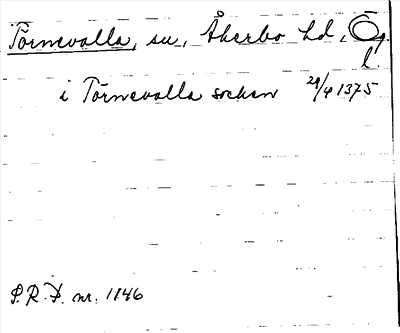 Törnevalla, sn, Åkerbo hd, Ög.
l.
i Törnevalla socken 29/4 1375
P.R.F. nr. 1146